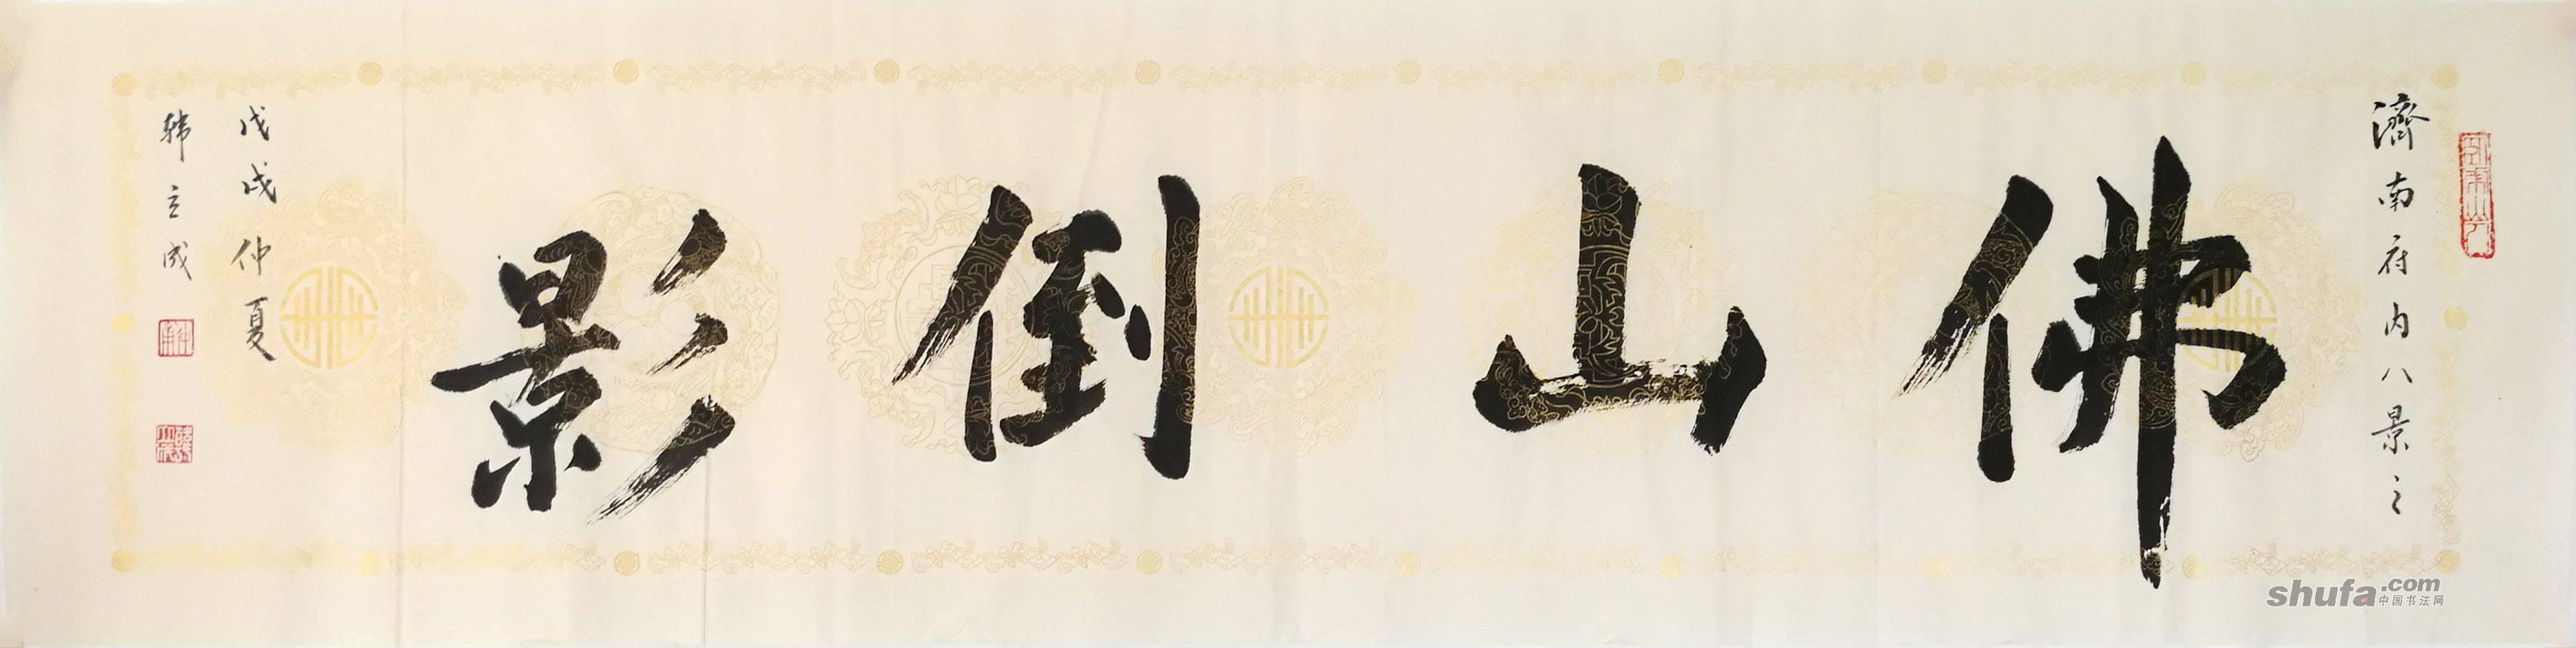 濟南府内八景之
佛山倒影
戊戌仲夏
韩立成
shufa.com
中国书法网